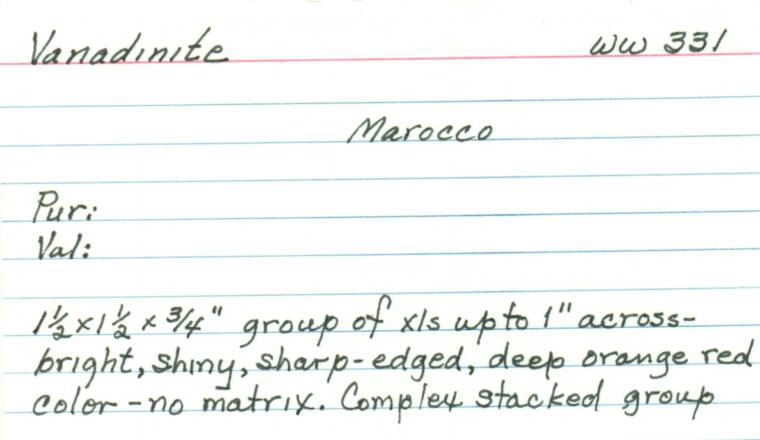 Vanadinite WW 331
Marocco
Pur:
Val:
1½ x 1½ x ¾" group of xls up to 1" across-
bright, shiny, sharp-edged, deep orange red
color - no matrix. Complex stacked group